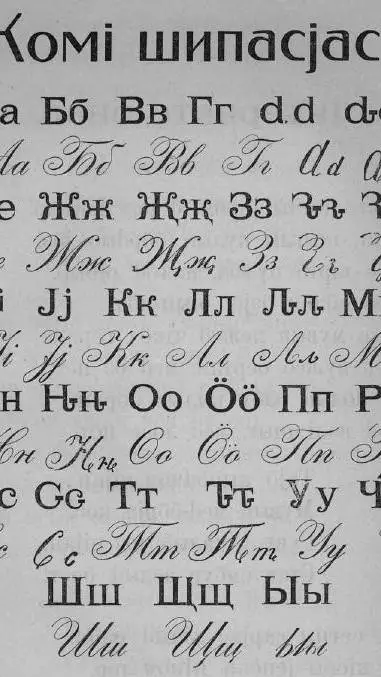 Комі шипасјас
а Бб Вв Гг Ԁԁ Ԃ
Аа Бб Вв Гг Ԁԁ
е Жж Җҗ Зз Ԅԅ
е Жж Җҗ Зз Ԅԅ
і Јј Кк Лл Ԉԉ М
і Јј Кк Лл Ԉԉ М
н Ԋԋ Оо Ӧӧ Пп Р
н Ԋԋ Оо Ӧӧ Пп
с Ԍԍ Тт Ԏԏ Уу Ч
с Ԍԍ Тт Ԏԏ Уу
Шш Щщ Ыы
Шш Щщ Ыы